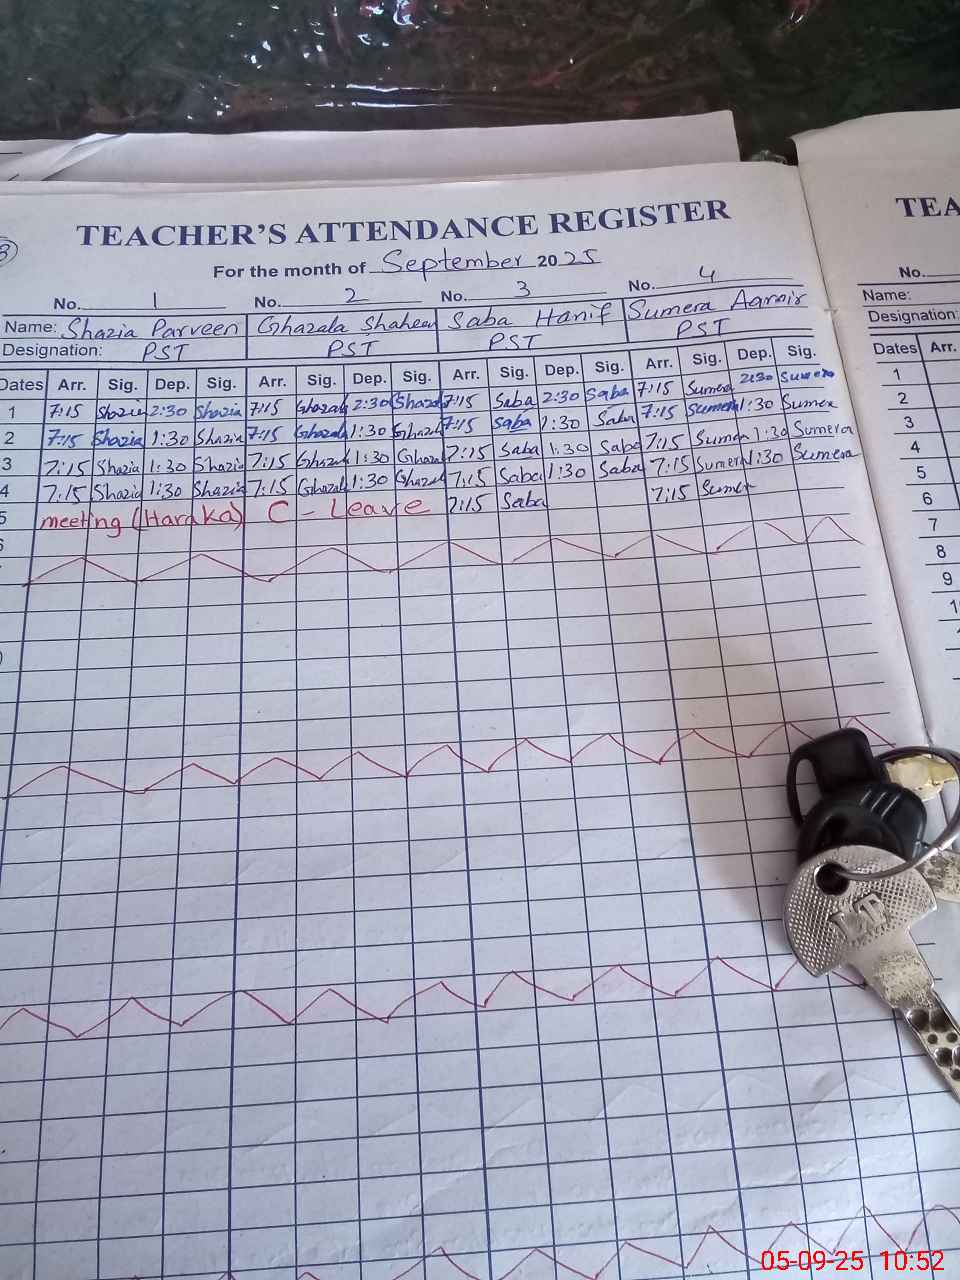 TEACHER'S ATTENDANCE REGISTER
For the month of September 2025
No. 1 No. 2 No. 3 No. 4
Name: Shazia Parveen Ghazala Shaheen Saba Hanif Sumera Aamir
Designation: PST PST PST PST
Dates Arr. Sig. Dep. Sig. Arr. Sig. Dep. Sig. Arr. Sig. Dep. Sig. Arr. Sig. Dep. Sig.
1 7:15 Shazia 2:30 Shazia 7:15 Ghazala 2:30 Ghazala 7:15 Saba 2:30 Saba 7:15 Sumera 2:30 Sumera
2 7:15 Shazia 1:30 Shazia 7:15 Ghazala 1:30 Ghazala 7:15 Saba 1:30 Saba 7:15 Sumera 1:30 Sumera
3 7:15 Shazia 1:30 Shazia 7:15 Ghazala 1:30 Ghazala 7:15 Saba 1:30 Saba 7:15 Sumera 1:30 Sumera
4 7:15 Shazia 1:30 Shazia 7:15 Ghazala 1:30 Ghazala 7:15 Saba 1:30 Saba 7:15 Sumera 1:30 Sumera
5 meeting (Haraka) C - Leave 7:15 Saba 7:15 Sumera
TEA
No.
Name:
Designation:
Dates Arr.
1
2
3
4
5
6
7
8
9
05-09-25 10:52